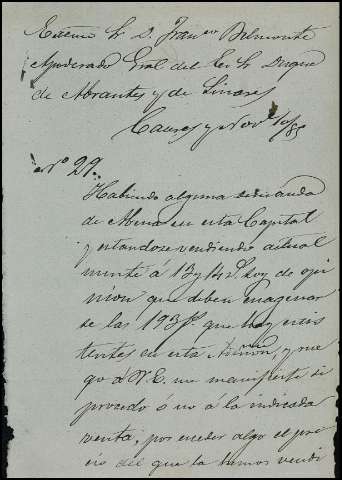 Excmo Sr D. Franco Belmonte
Apoderado Gral del Ex Sr Duque
de Abrantes y de Linares
Caceres y Nov 10/85
Nº 29.
Habiendo alguna demanda
de Abena en esta Capital
y estandose vendiendo actual
mente á 13 y 14 soy de opi
nion que deben enagenar
se las 193 fs. que hay exis
tentes en esta Admon, y rue
go á V.E. me manifieste si
procedo ó no á la indicada
venta, por exceder algo el pre
cio del que la hemos vendi